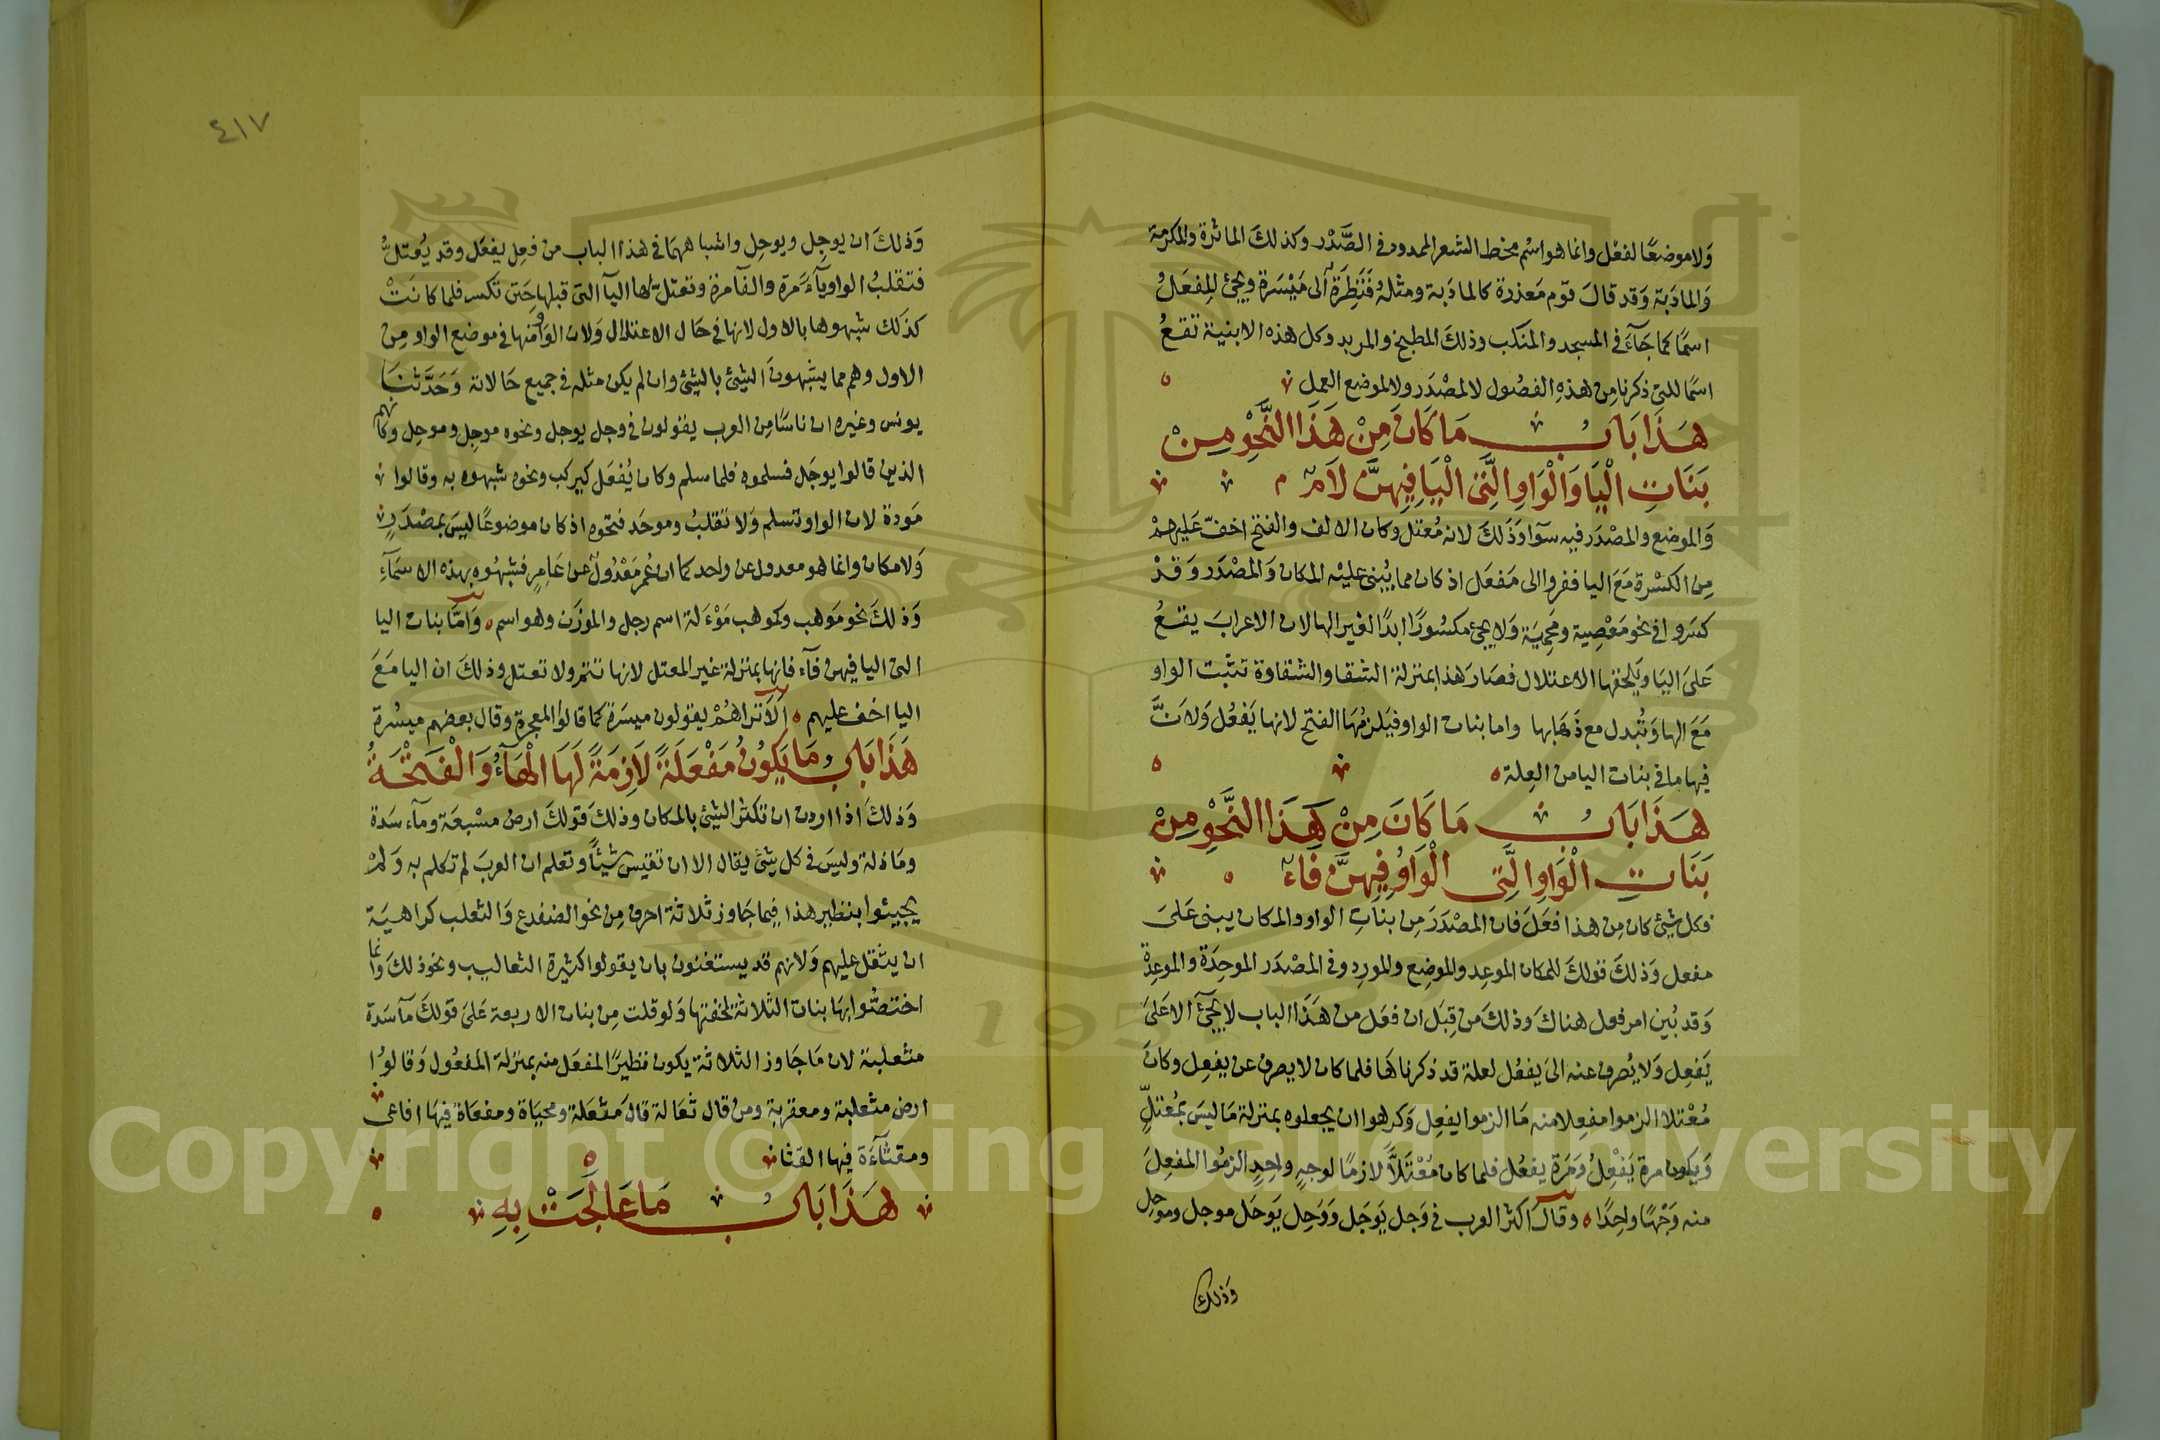 وَلا موضعًا لفعْل وانما هو اسْم مخط الشعر الممدود في الصَّدْر وكذلكَ الماثرة والمكرمة
وَالمادَبة وَقد قالَ قوم مَعذرة كالمادَبة ومثلهُ فَنَظِرَةٌ الَى مَيْسَرة ويجئ المِفعَلُ
اسمًا كما جَآءَ في المسجد والمنكب وذلكَ المطبخ والمربد وكل هذه الابنية تقعُ
اسمًا للتي ذكرنا مِن هذهِ الفصُول لا لمصْدَر ولا لموضع العمل
هَذَا بَابُ مَا كَانَ مِنْ هَذَا النَّحْوِ مِنْ
بَنَاتِ الْيَا وَالْوَاوِ الَّتِى الْيَا فِيهِنَّ لَامٌ
وَالموضع والمصْدَر فيه سوآ وَذَلكَ لانه مُعتل وكان الالف والفتح اخفّ عَليهمْ
مِن الكسْرة مَعَ اليا ففروا الى مَفعَل اذ كان مما يُبنى عليْه المكان وَالمصْدَر وَقدْ
كسَروا في نحو مَعْصِية ومَحمِيَة وَلا يجئ مكسُورًا ابدًا لغير الها لان الاعرابَ يقعُ
عَلىَ اليَا ويَلحقها الاعتلال فصَارَ هذا بمنزلة الشقا والشقاوة تثبت الواو
مَعَ الها وَتُبدل مع ذَهَابها واما بنات الواو فيَلزمُهَا الفتح لانها يَفعُل وَلانَّ
فيها ما في بنات اليا من العِلة
هَذَا بَابُ مَا كَانَ مِنْ هَذَا النَّحْوِ مِنْ
بَنَاتِ الْوَاوِ الَّتِى الْوَاوُ فِيهِنَّ فَاءٌ
فكل شئ كان مِن هذا فَعَلَ فان المصْدَرَ مِن بناتِ الواو والمكان يبنى عَلىَ
مفعل وَذلكَ قولكَ للمكان الموعِد والموضِع والمورِد وفي المصْدَر الموجِدَة والموعِدة
وَقد بُين امر فعل هناكَ وذلكَ مَن قِبَل ان فعَل من هَذا الباب لا يَجِئُ الا عَلىَ
يَفعِل وَلا يُصرف عنه الىَ يفعُل لعلة قد ذكرناها فلما كان لا يصرف عن يفعِل وكانَ
مُعْتلا الزموا مفعِلا منه مَا الزموا يفعِل وَكرهوا ان يجعلوه بمنزلة مَا ليسَ بمُعتلّ
وَيكون مرة يَفْعِلُ وَمَرة يفعُل فلما كان مُعْتَلاًّ لازمًا لوجهٍ واحِدٍ الزمُوا المفعِلَ
منه وَجْهًا واحِدًا وقالَ اكثر العرب في وَجِل يَوجَل وَوَحِل يَوحَل موجل وموحِل
وَذلك
٤١٧
وَذلكَ ان يوجِل ويوحِل واشباههمَا في هذا الباب من فعِل يفعَل وقد يُعتلُّ
فتقلبُ الواو يآءً مَرة والفآ مرة وتعتلّ لها اليآ التى قبلها حَتى تكسر فلما كانتْ
كذلك شبهوها بالاول لانها في حَال الاعتلال وَلان الواو منها في موضع الواو مِن
الاول وهم مما يشبّهونَ الشيئ بالشيئ وان لم يكن مثله في جميع حَالاته وَحَدَّثنَا
يونس وغيره ان ناسًا مِن العرب يقولون في وجل يوجل ونحوه موجل وموحِل وكانهم
الذين قالوا يوجَل فسلموه فلما سلم وكان يُفعَل كيركب ونحوه شبهوه به وقالوا
مَودة لان الواو تسلم وَلا تقلبُ وموحَد فتحوه اذ كان موضوعًا ليسَ بمصْدَرٍ
وَلا مكان وانما هو معدول عن واحد كما ان عُمر مَعْدُولٌ عن عَامِرٍ فشبهُوه بهذه الاسمَآءِ
وَذلكَ نحو مَوهَب وكموهب مَوْءَلة اسم رجل والموزَن وهو اسم وَامَّا بنات اليا
التى اليا فيهن فآء فانها بمنزلة غير المعتل لانها تتم ولا تعتل وذلكَ ان اليا مَعَ
اليا اخف عليهم الَا تراهُمْ يقولون ميسَرة كما قالوا المعجزة وقال بعضهم ميسُرة
هَذَا بَابُ مَا يَكُونُ مَفْعَلَةً لَازِمَةً لَهَا الْهَآءُ وَالْفَتْحَةُ
وَذلكَ اذا اردت ان تكثر الشيئ بالمكان وذلكَ قولكَ ارض مسْبعَة ومآءسَدة
ومَاذلة وليسَ في كل شئ يقال الا ان تقيسَ شيئًا وتعلم ان العربَ لم تكلم به وَلمْ
يجيئوا بنظير هذا فيما جَاوز ثلاثة احرف مِن نحو الضفدع وَالثعلب كراهيَة
ان يثقل عليهم وَلانهم قد يستغنون بان يقولوا كثيرة الثعاليب ونحو ذلكَ وانما
اختصُّوا بهَا بنات الثلاثة لخفتها وَلو قلت مِن بنات الاربعة عَلىَ قولكَ مآسَدة
مثعلبة لان مَا جَاوز الثلاثة يكون نظيرًا لمفعَل منه بمنزلة المَفعُول وَقالوُا
ارض مثعلبة ومعقربة ومن قال ثعَالة قالَ مَثعَلة ومحيَاة ومفعَاة فيهَا افاعى
ومقثآءَة فيها القثا
هَذَا بَابُ مَا عَالَجَتْ بِهِ
Copyright © King Saud University
1957